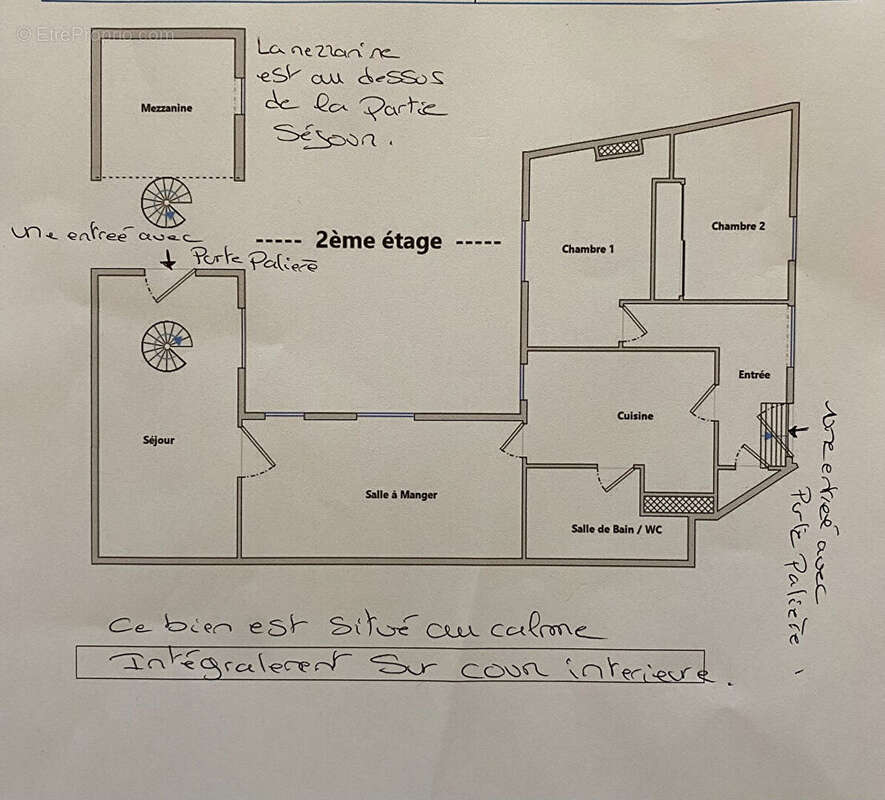 © EtreProprio.com
La mezzanine
est au dessus
de la Partie
Séjour.
Mezzanine
une entreé avec
Porte Palierè
2ème étage
Chambre 1
Chambre 2
Entrée
Cuisine
Séjour
Salle à Manger
Salle de Bain / WC
entreé avec
Porte Palière
Ce bien est situé au calme
Intégralement sur cour interieure.